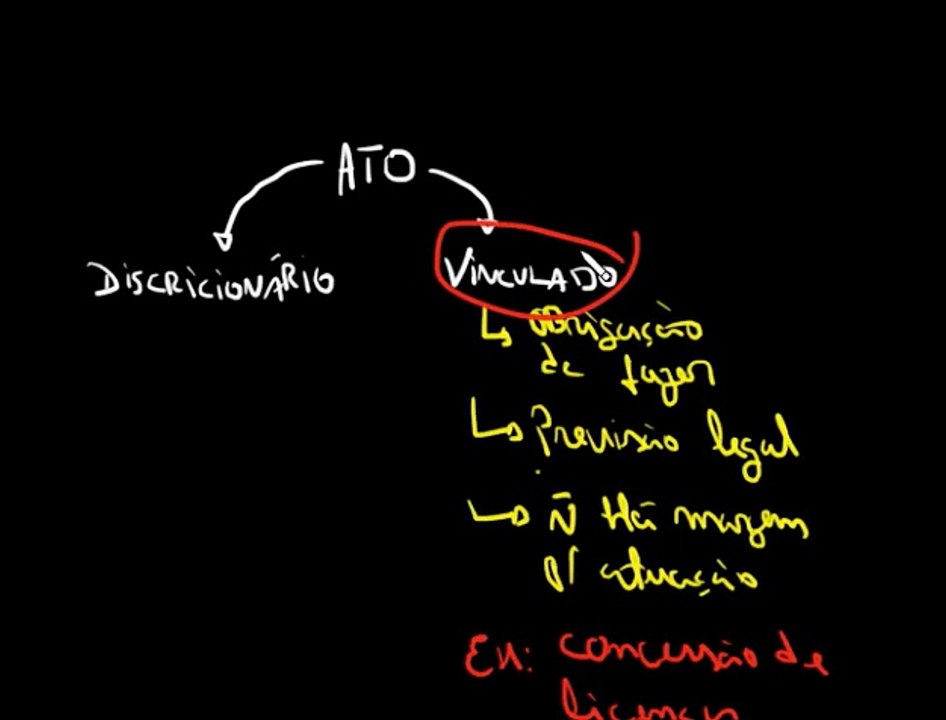 ATO
DISCRICIONÁRIO
VINCULADO
obrigação
de fazer
Previsão legal
Ñ Há margem
P/ atuação
Ex: concessão de
licença